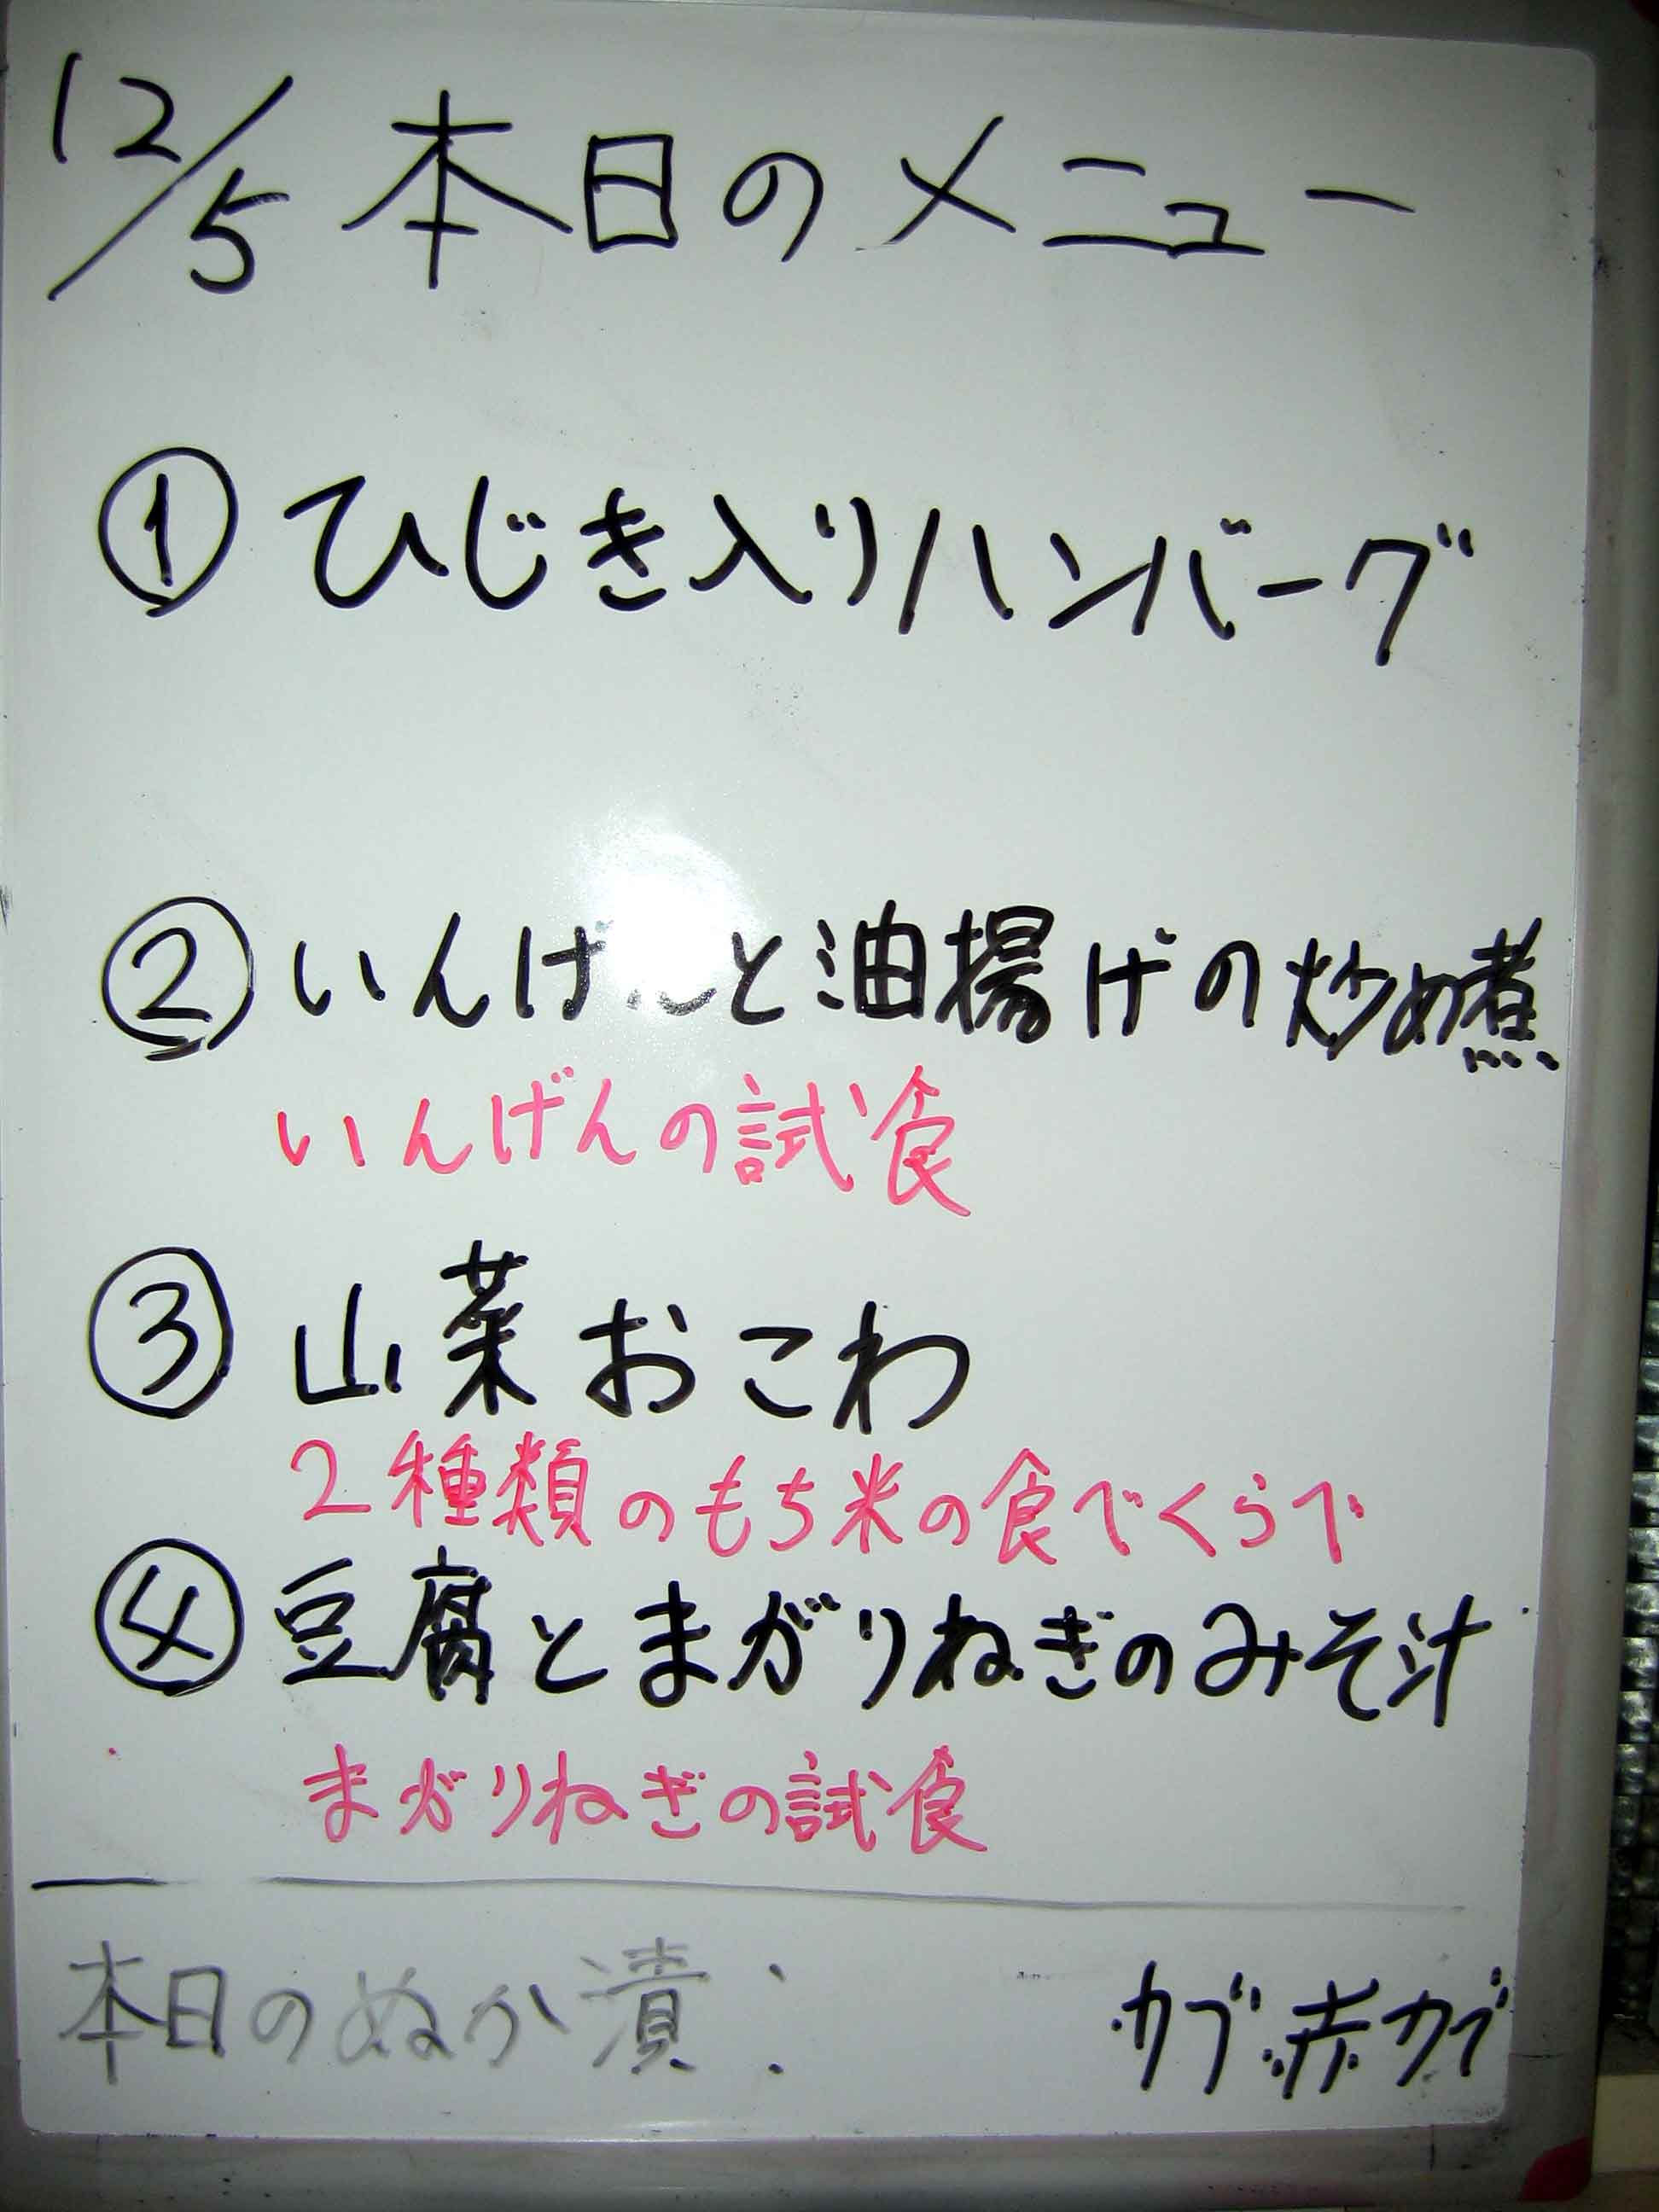 12/5 本日のメニュー
① ひじき入りハンバーグ
② いんげんと油揚げの炒め煮
いんげんの試食
③ 山菜おこわ
2種類のもち米の食べくらべ
④ 豆腐とまがりねぎのみそ汁
まがりねぎの試食
本日のぬか漬: カブ、赤カブ